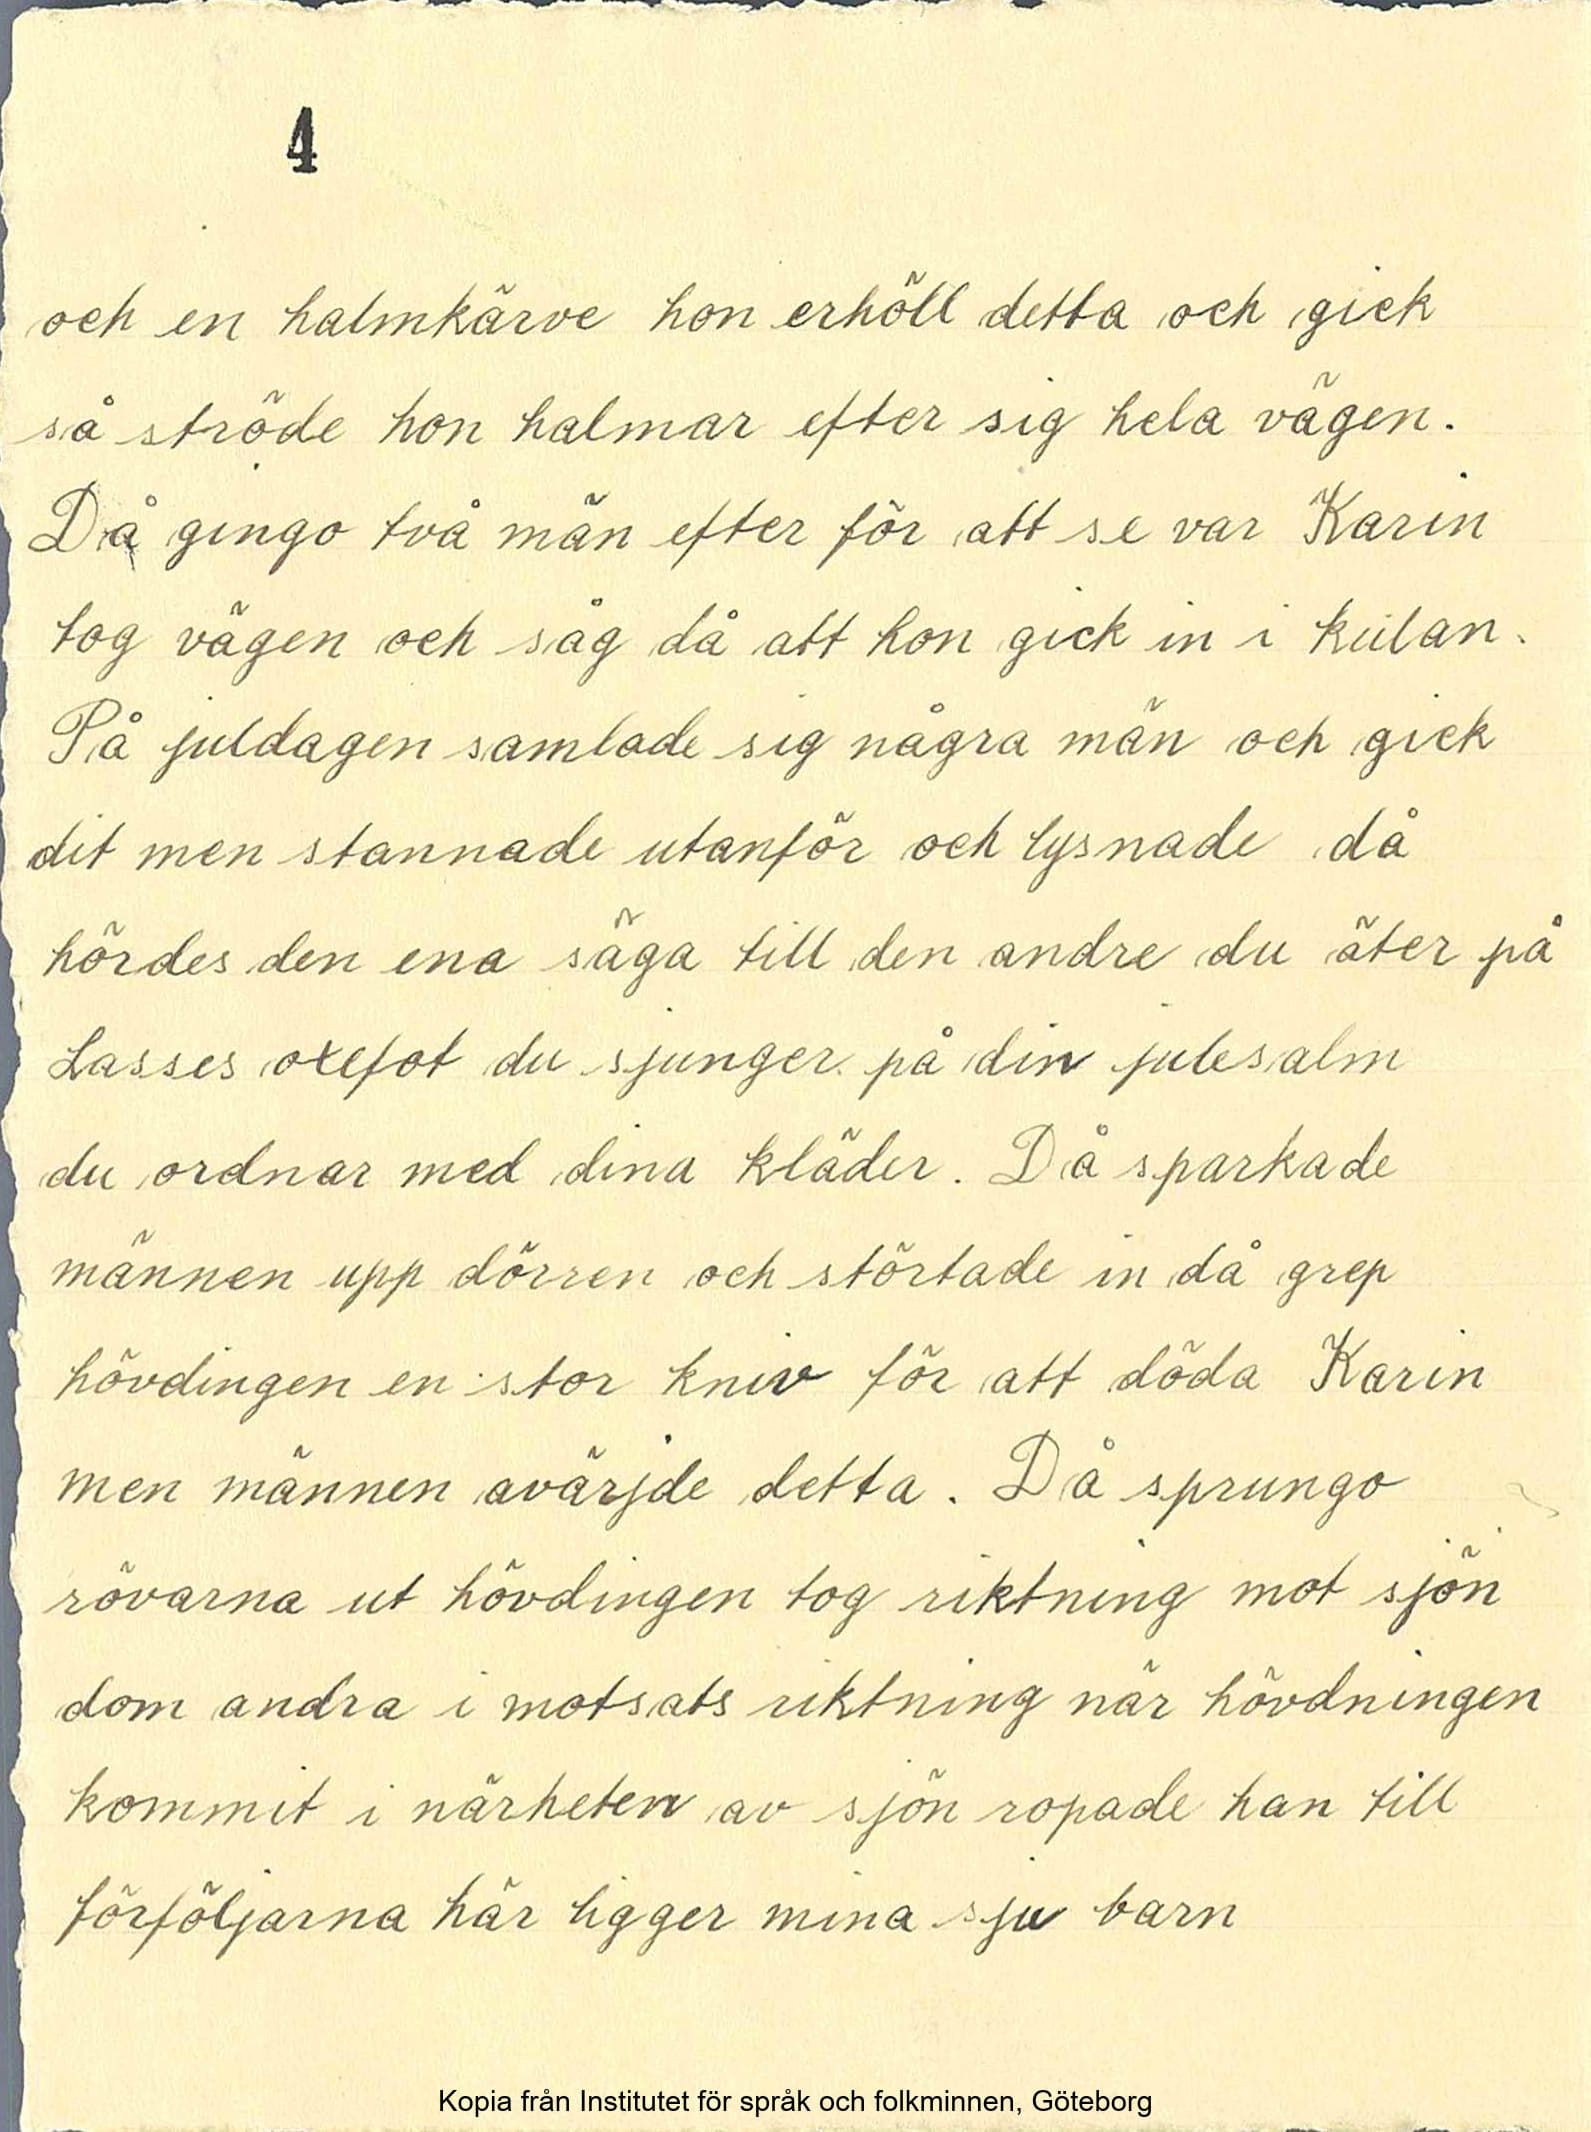 4
och en halmkärve hon erhöll detta och gick
så ströde hon halmar efter sig hela vägen.
Då gingo två män efter för att se var Karin
tog vägen och såg då att hon gick in i kulan.
På juldagen samlade sig några män och gick
dit men stannade utanför och lysnade då
hördes den ena säga till den andre du äter på
Lasses oxefot du sjunger på din julesalm
du ordnar med dina kläder. Då sparkade
männen upp dörren och störtade in då grep
hövdingen en stor kniv för att döda Karin
men männen avärjde detta. Då sprungo
rövarna ut hövdingen tog riktning mot sjön
dom andra i motsats riktning när hövdningen
kommit i närheten av sjön ropade han till
förföljarna här ligger mina sju barn
Kopia från Institutet för språk och folkminnen, Göteborg